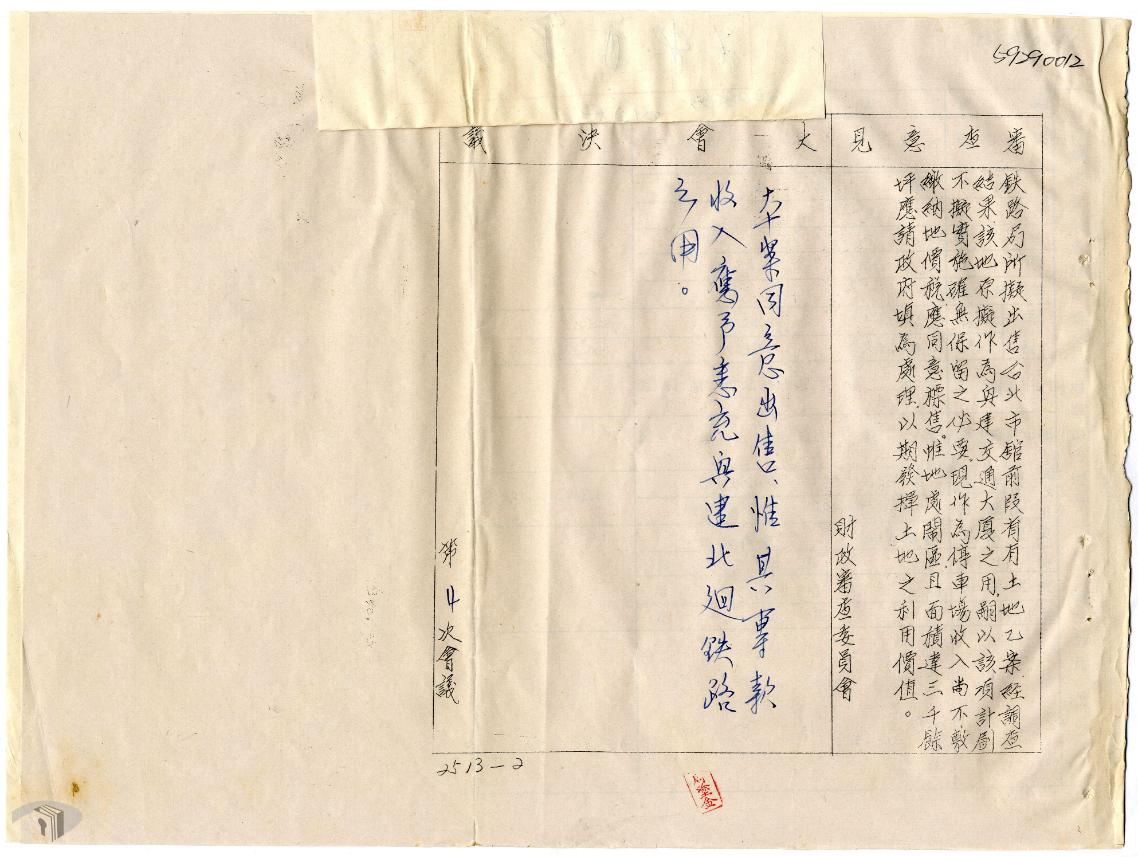 59290012
審查意見
鉄路局所擬出售台北市館前段有有土地乙案經調查
結果該地原擬作為興建交通大廈之用嗣以該項計劃
不擬實施確無保留之必要現作為停車場收入尚不敷
繳納地價稅應同意標售惟地處鬧區且面積達三千餘
坪應請政府填為處理以期發揮土地之利用價值。
財政審查委員會
大會決議
本案同意出售、惟其
款
收入應予悉充興建北迴鉄路
之用。
第4次會議
2513-2